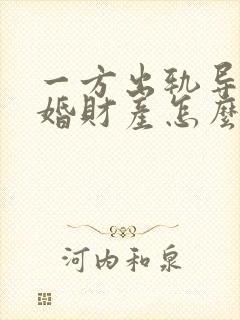 一方出轨导
婚財産怎麼
河内和泉